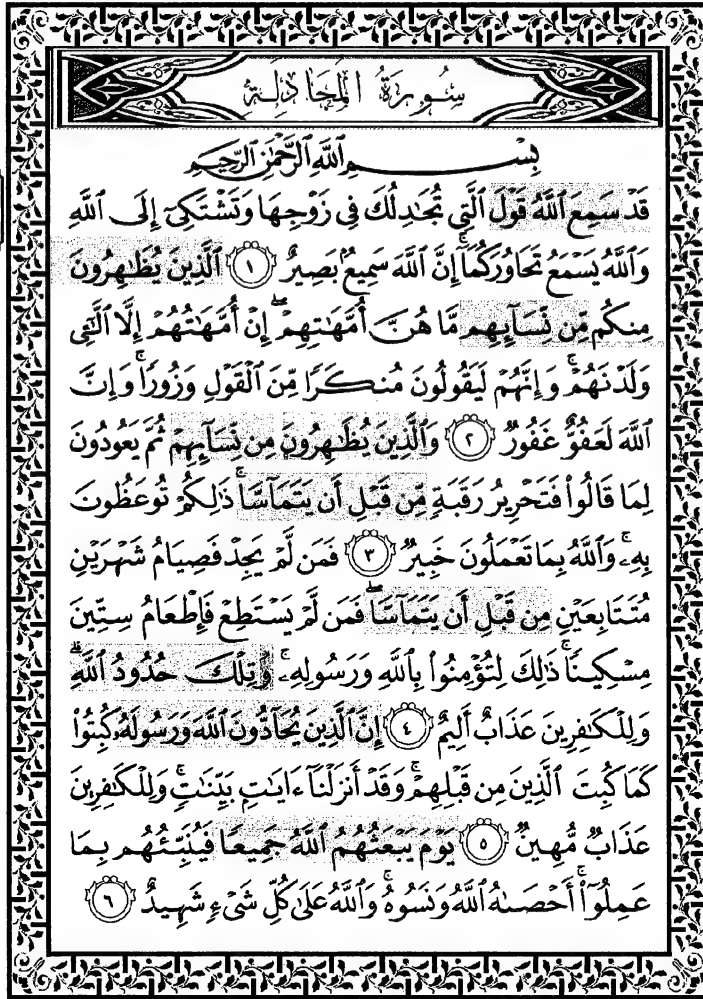 سُورَةُ الْمُجَادِلَةِ
بِسْمِ ٱللَّهِ ٱلرَّحْمَٰنِ ٱلرَّحِيمِ
قَدْ سَمِعَ ٱللَّهُ قَوْلَ ٱلَّتِي تُجَٰدِلُكَ فِي زَوْجِهَا وَتَشْتَكِيٓ إِلَى ٱللَّهِ
وَٱللَّهُ يَسْمَعُ تَحَاوُرَكُمَآۚ إِنَّ ٱللَّهَ سَمِيعُۢ بَصِيرٌ ١ ٱلَّذِينَ يُظَٰهِرُونَ
مِنكُم مِّن نِّسَآئِهِم مَّا هُنَّ أُمَّهَٰتِهِمْۖ إِنْ أُمَّهَٰتُهُمْ إِلَّا ٱلَّٰٓـِٔي
وَلَدْنَهُمْۚ وَإِنَّهُمْ لَيَقُولُونَ مُنكَرًا مِّنَ ٱلْقَوْلِ وَزُورًاۚ وَإِنَّ
ٱللَّهَ لَعَفُوٌّ غَفُورٌ ٢ وَٱلَّذِينَ يُظَٰهِرُونَ مِن نِّسَآئِهِمْ ثُمَّ يَعُودُونَ
لِمَا قَالُوا۟ فَتَحْرِيرُ رَقَبَةٍ مِّن قَبْلِ أَن يَتَمَآسَّاۚ ذَٰلِكُمْ تُوعَظُونَ
بِهِۦۚ وَٱللَّهُ بِمَا تَعْمَلُونَ خَبِيرٌ ٣ فَمَن لَّمْ يَجِدْ فَصِيَامُ شَهْرَيْنِ
مُتَتَابِعَيْنِ مِن قَبْلِ أَن يَتَمَآسَّاۖ فَمَن لَّمْ يَسْتَطِعْ فَإِطْعَامُ سِتِّينَ
مِسْكِينًاۚ ذَٰلِكَ لِتُؤْمِنُوا۟ بِٱللَّهِ وَرَسُولِهِۦۚ وَتِلْكَ حُدُودُ ٱللَّهِۗ
وَلِلْكَٰفِرِينَ عَذَابٌ أَلِيمٌ ٤ إِنَّ ٱلَّذِينَ يُحَآدُّونَ ٱللَّهَ وَرَسُولَهُۥ كُبِتُوا۟
كَمَا كُبِتَ ٱلَّذِينَ مِن قَبْلِهِمْۚ وَقَدْ أَنزَلْنَآ ءَايَٰتٍۭ بَيِّنَٰتٍۚ وَلِلْكَٰفِرِينَ
عَذَابٌ مُّهِينٌ ٥ يَوْمَ يَبْعَثُهُمُ ٱللَّهُ جَمِيعًا فَيُنَبِّئُهُم بِمَا
عَمِلُوٓا۟ۚ أَحْصَىٰهُ ٱللَّهُ وَنَسُوهُۚ وَٱللَّهُ عَلَىٰ كُلِّ شَيْءٍ شَهِيدٌ ٦